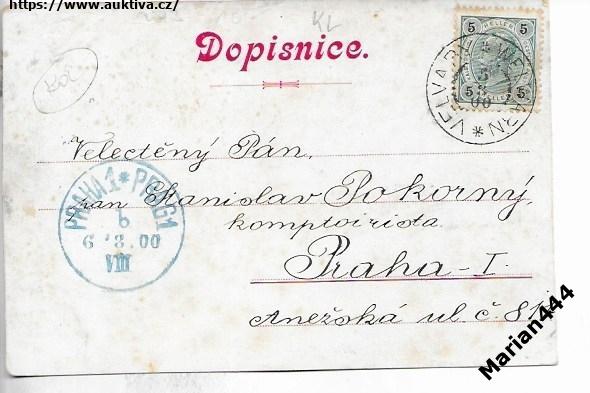 https://www.auktiva.cz/
KL
Dopisnice.
5 HELLER 5
5 5
VELVARY * WELWARN *
00
Velectěný Pán,
pan Stanislav Pokorný
komptoirista
Praha-I.
Anežská ul č. 81
PRAHA 1 * PRAG 1
b
6 / 8.00
VIII
Marian444